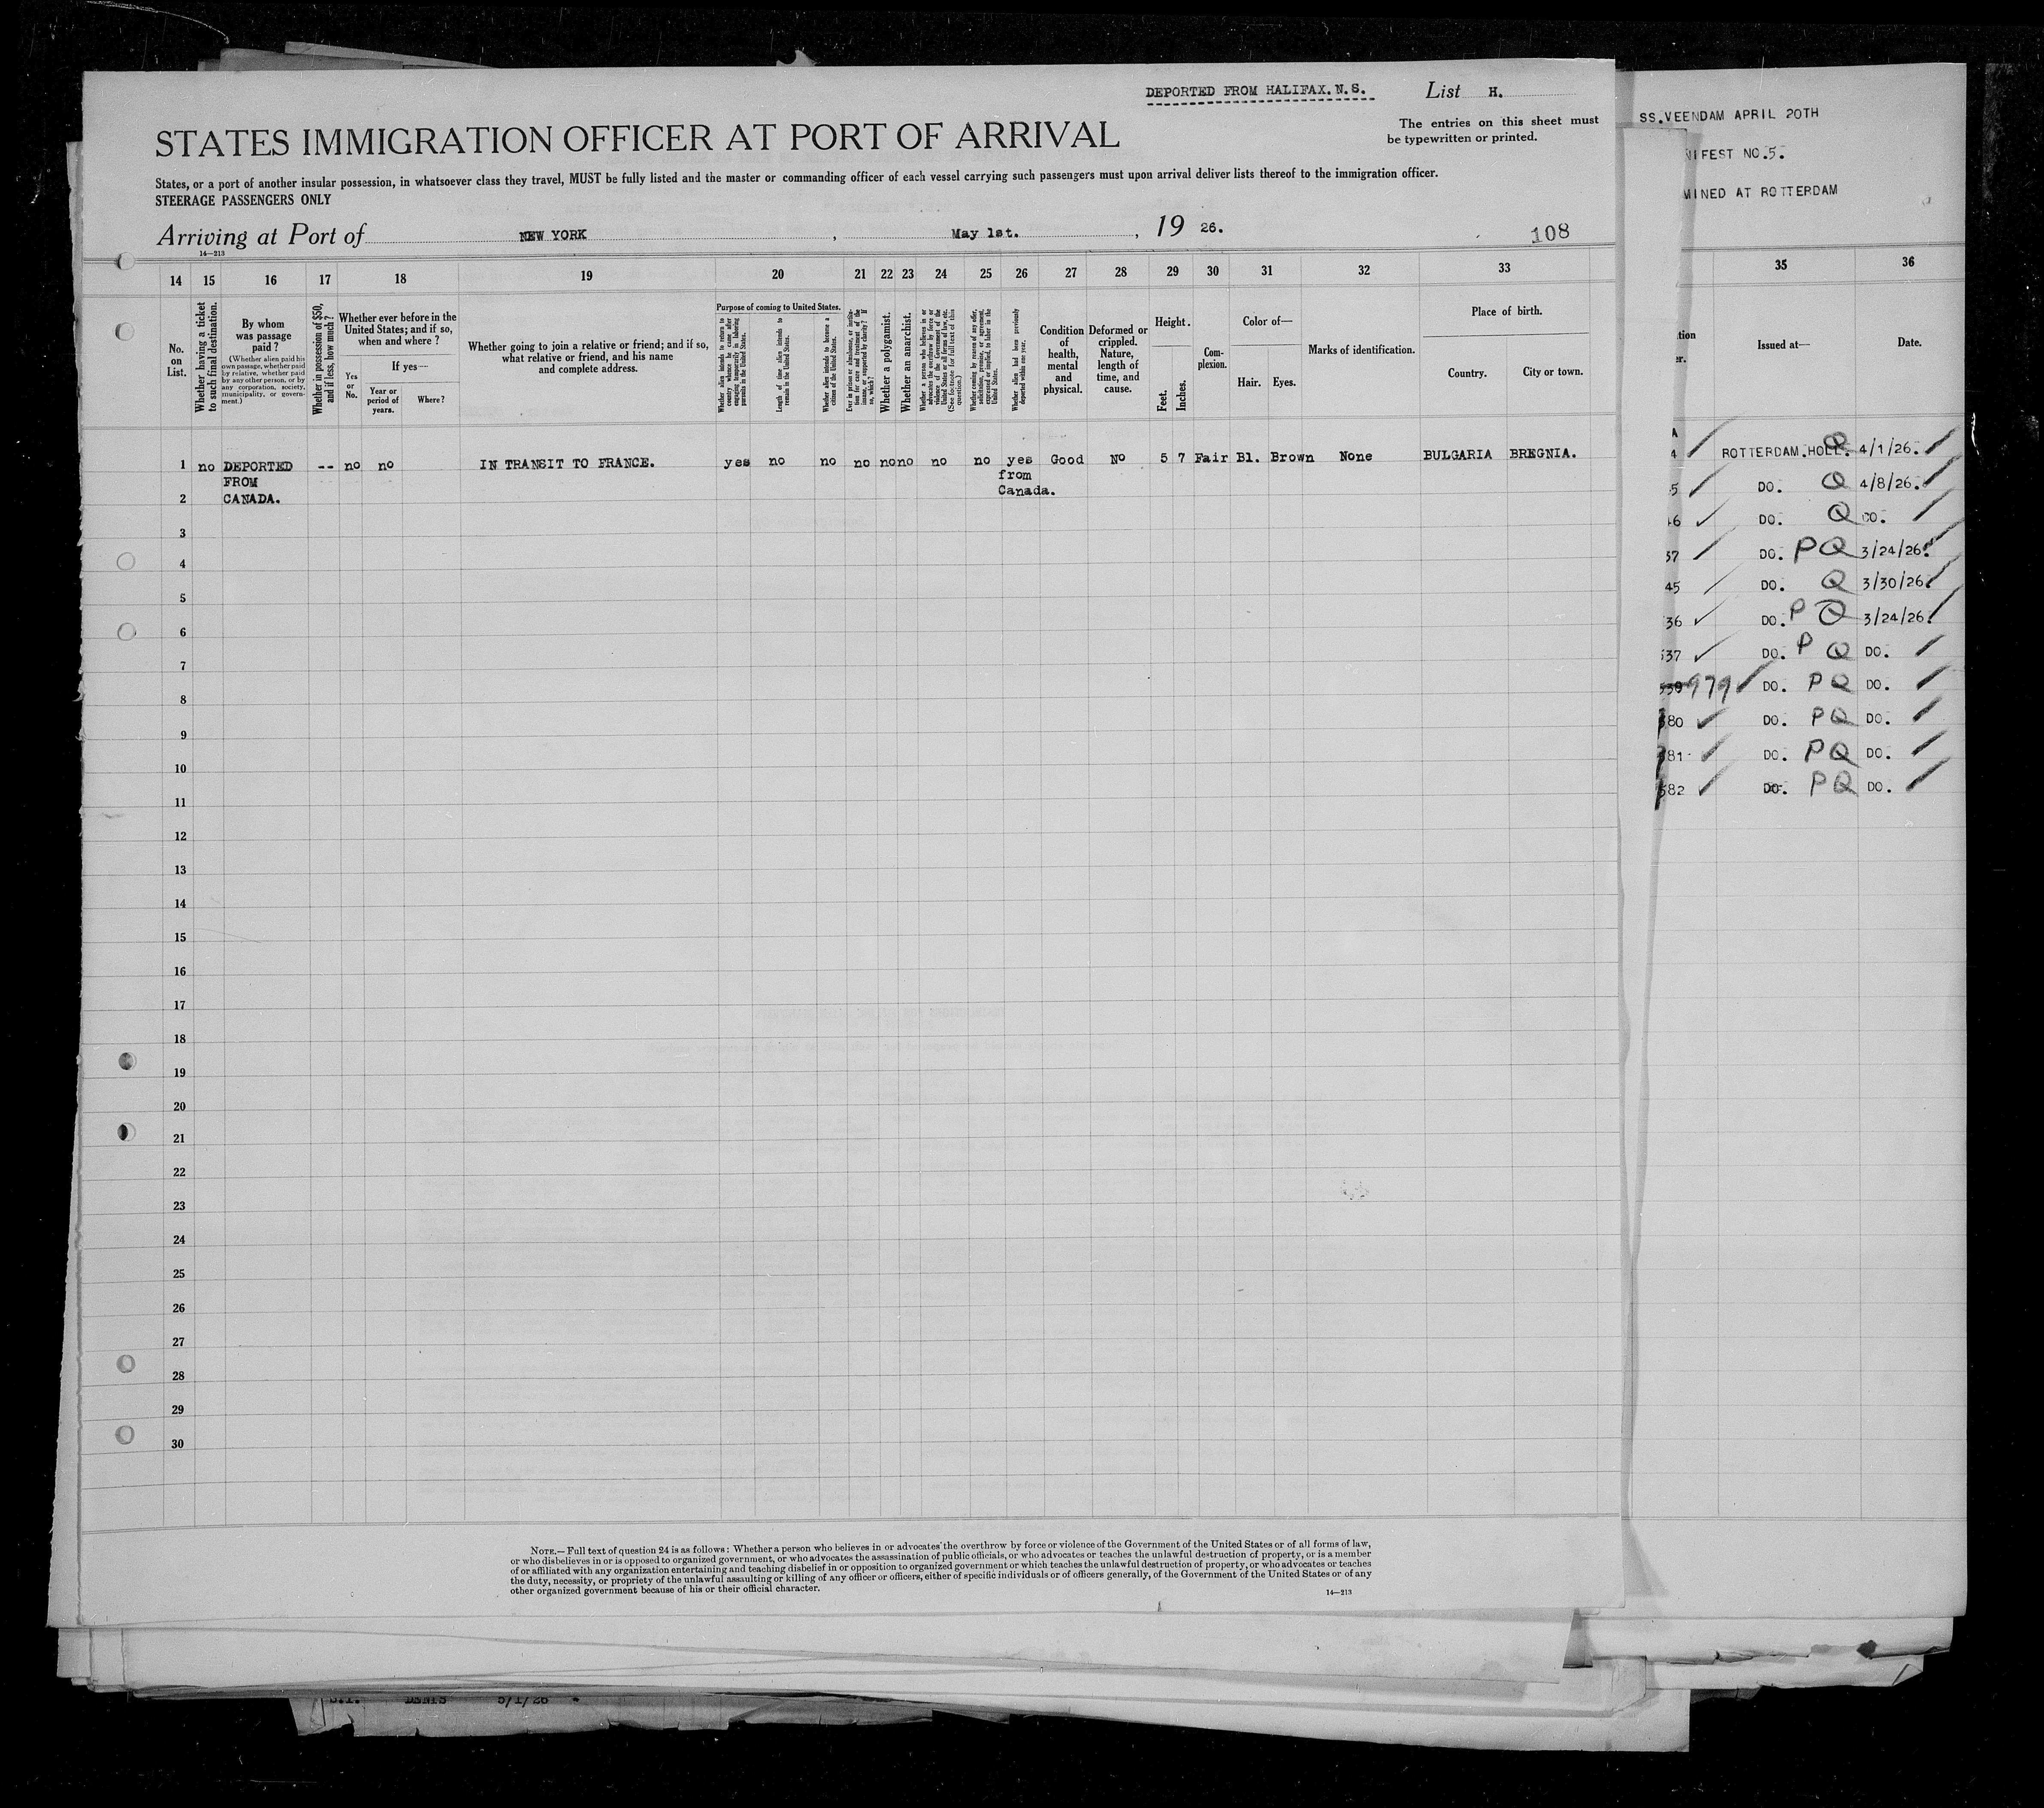 DEPORTED FROM HALIFAX. N. S.
List H.
STATES IMMIGRATION OFFICER AT PORT OF ARRIVAL
The entries on this sheet must
be typewritten or printed.
States, or a port of another insular possession, in whatsoever class they travel, MUST be fully listed and the master or commanding officer of each vessel carrying such passengers must upon arrival deliver lists thereof to the immigration officer.
STEERAGE PASSENGERS ONLY
Arriving at Port of NEW YORK , May 1st. , 19 26.
108
14—213
14 15 16 17 18 19 20 21 22 23 24 25 26 27 28 29 30 31 32 33
No. on List.
Whether having a ticket to such final destination.
By whom was passage paid?
(Whether alien paid his own passage, whether paid by relative, whether paid by any other person, or by any corporation, society, municipality, or government.)
Whether in possession of $50, and if less, how much?
Whether ever before in the United States; and if so, when and where?
Yes or No.
If yes—
Year or period of years.
Where?
Whether going to join a relative or friend; and if so, what relative or friend, and his name and complete address.
Purpose of coming to United States.
Whether alien intends to return to country whence he came after engaging temporarily in laboring pursuits in the United States.
Length of time alien intends to remain in the United States.
Whether alien intends to become a citizen of the United States.
Ever in prison or almshouse, or institution for care and treatment of the insane, or supported by charity? If so, which?
Whether a polygamist.
Whether an anarchist.
Whether a person who believes in or advocates the overthrow by force or violence of the Government of the United States or all forms of law, etc. (See footnote for full text of this question.)
Whether coming by reason of any offer, solicitation, promise, or agreement, expressed or implied, to labor in the United States.
Whether alien had been previously deported within one year.
Condition of health, mental and physical.
Deformed or crippled. Nature, length of time, and cause.
Height.
Feet. Inches.
Complexion.
Color of—
Hair. Eyes.
Marks of identification.
Place of birth.
Country. City or town.
1 no DEPORTED -- no no IN TRANSIT TO FRANCE. yes no no no no no no no yes Good No 5 7 Fair Bl. Brown None BULGARIA BREGNIA.
FROM from
2 CANADA. Canada.
3
4
5
6
7
8
9
10
11
12
13
14
15
16
17
18
19
20
21
22
23
24
25
26
27
28
29
30
NOTE.—Full text of question 24 is as follows: Whether a person who believes in or advocates the overthrow by force or violence of the Government of the United States or of all forms of law,
or who disbelieves in or is opposed to organized government, or who advocates the assassination of public officials, or who advocates or teaches the unlawful destruction of property, or is a member
of or affiliated with any organization entertaining and teaching disbelief in or opposition to organized government or which teaches the unlawful destruction of property, or who advocates or teaches
the duty, necessity, or propriety of the unlawful assaulting or killing of any officer or officers, either of specific individuals or of officers generally, of the Government of the United States or of any
other organized government because of his or their official character.
14—213
SS.VEENDAM APRIL 20TH
NIFEST NO.5.
MINED AT ROTTERDAM
35 36
tion
Issued at— Date.
4 ROTTERDAM.HOLL. Q 4/1/26.
5 DO. Q 4/8/26.
46 DO. Q DO.
37 DO. PQ 3/24/26.
45 DO. Q 3/30/26.
36 DO. P Q 3/24/26.
537 DO. P Q DO.
979 DO. PQ DO.
580 DO. PQ DO.
581 DO. PQ DO.
582 DO. PQ DO.
S.I. DENIS 5/1/26